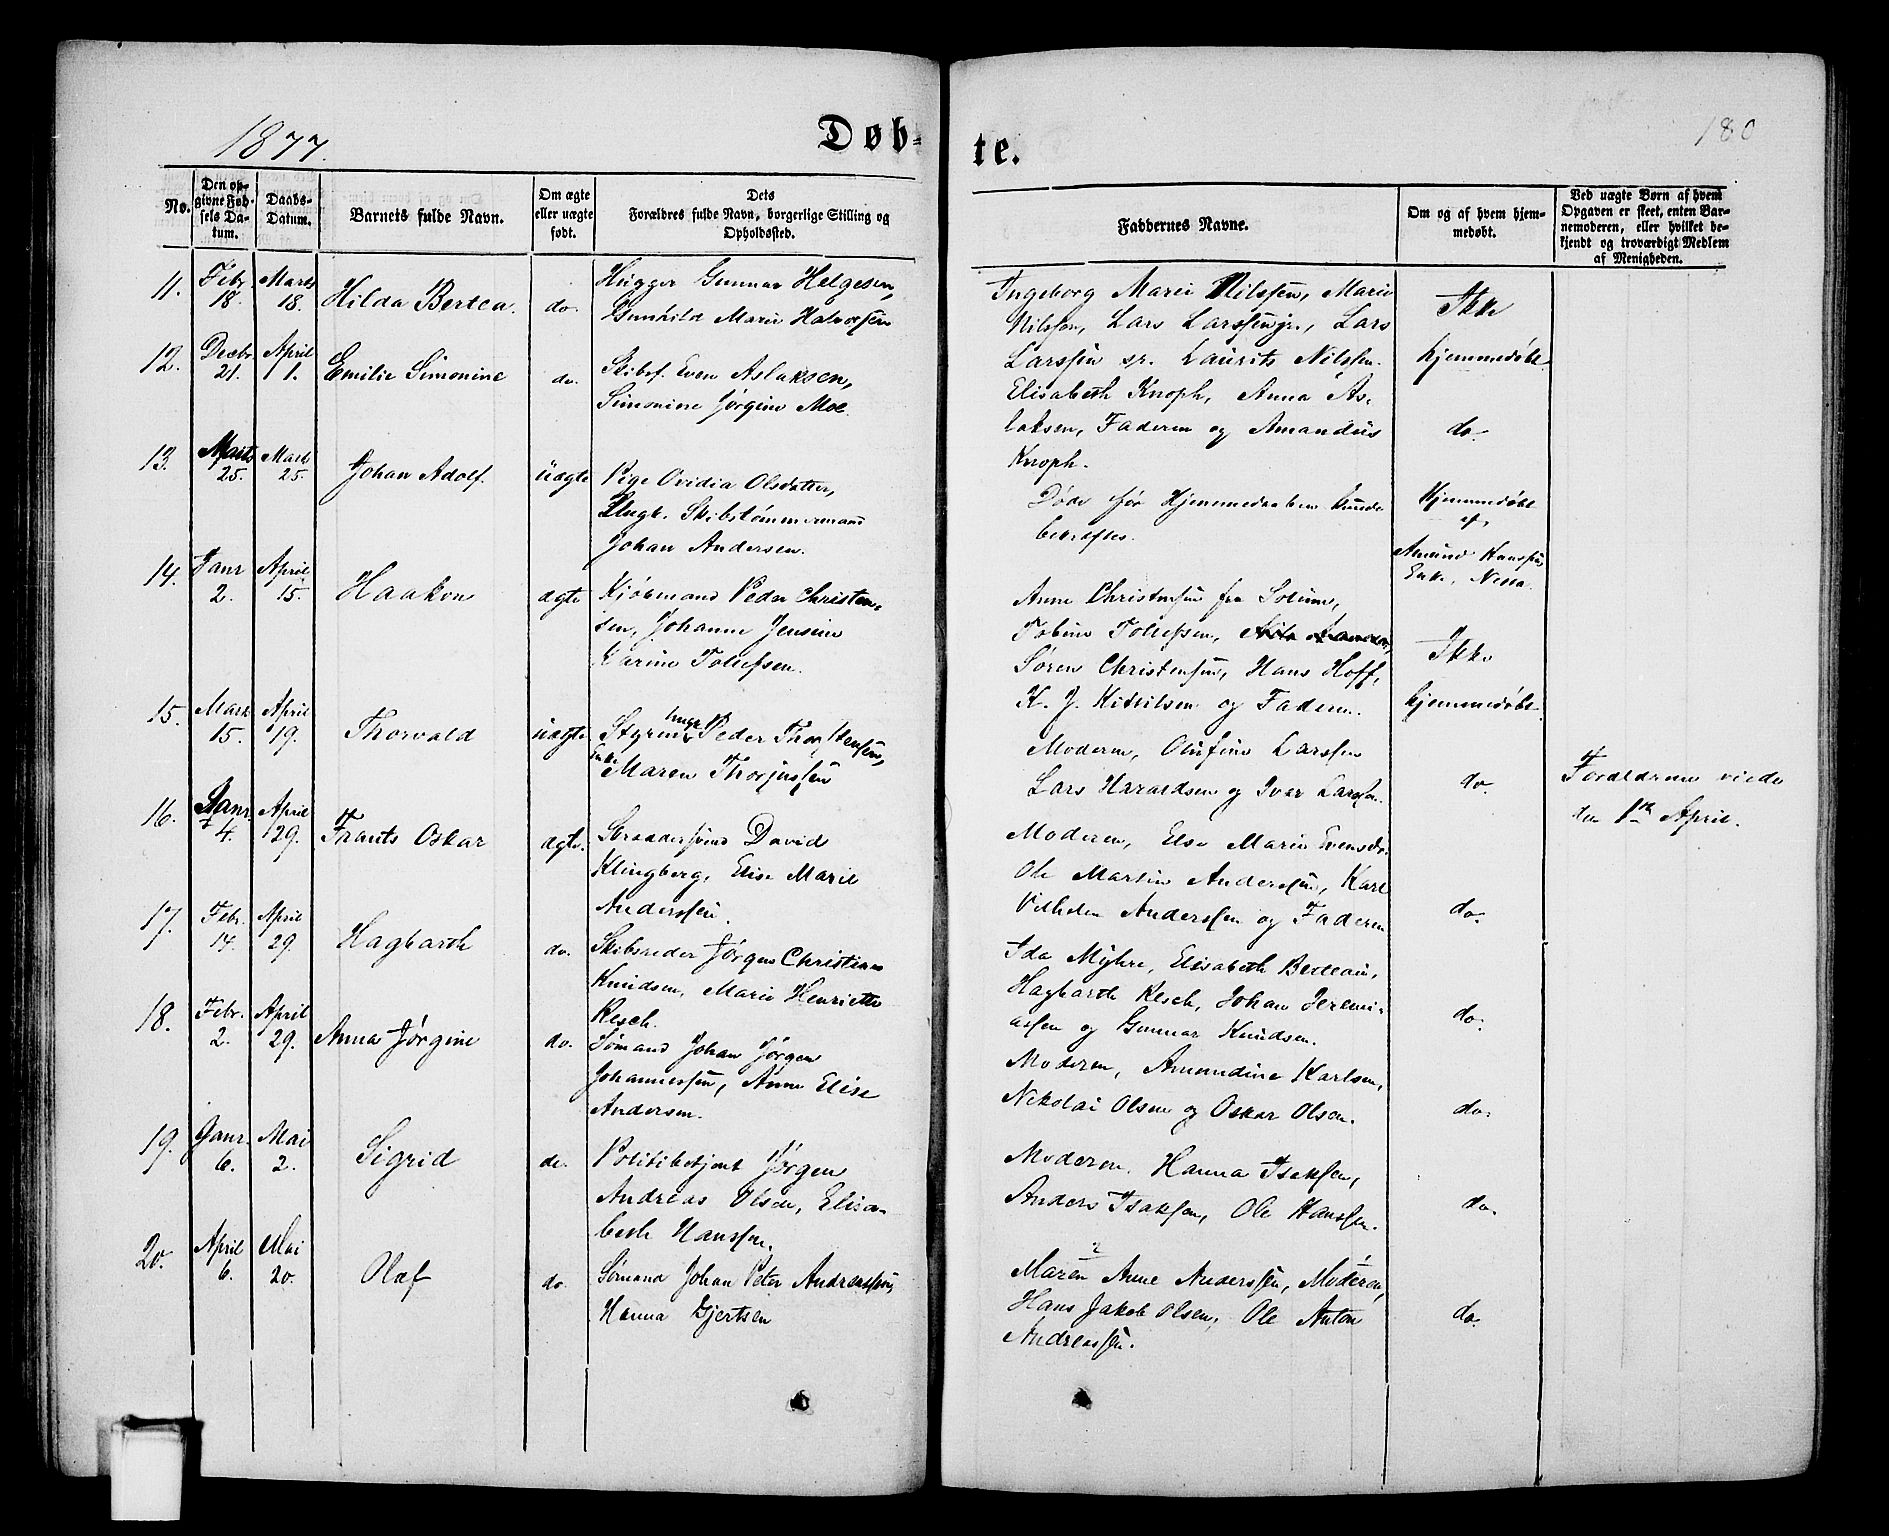 1877.
Døb-
te.
180
No.
Den op-
givne Fød-
sels Da-
tum.
Daabs-
Datum.
Barnets fulde Navn.
Om ægte
eller uægte
født.
Dets
Forældres fulde Navn, borgerlige Stilling og
Opholdssted.
Faddernes Navne.
Om og af hvem hjem-
medøbt.
Ved uægte Børn af hvem
Opgaven er skeet, enten Bar-
nemoderen, eller hvilket be-
kjendt og troværdigt Medlem
af Menigheden.
11. Febr 18. Marts 18. Hilda Bertea. do. Hugger Gunnar Helgesen,
Gunhild Marie Halvorsen
Ingeborg Marie Nilssen, Marie
Nilssen, Lars Larssen jr., Lars
Larssen sr. Laurits Nilssen.
Ikke
hjemmedøbt
12. Decbr. 21. April 1. Emilie Simonine do. Skibsf. Even Aslaksen,
Simonine Jørgine Moe.
Elisabeth Knoph, Anna As-
laksen, Faderen og Amandus
Knoph.
do.
13. Marts 25. Marts 25. Johan Adolf. uægte Pige Ovidia Olsdatter,
Ungk. Skibstømmermand
Johan Andersen.
Døde før Hjemmedaaben kunde
bekræftes.
Hjemmedøbt
af
Amund Hanssens
Enke, Nissa
14. Janr 2. April 15. Haakon ægte Kjøbmand Peder Christen-
sen, Johanne Jensine
Karine Tollefsen.
Anne Christensen fra Solum,
Tobine Tollefsen,
Søren Christensen, Hans Hoff,
K. J. Kittilsen og Faderen.
Ikke
hjemmedøbt.
15. Marts 15. April 19. Thorvald uægte. Styrmd. Ungk. Peder Thorstensen,
Enke Maren Thorjussen
Moderen, Olufine Larssen
Lars Haraldsen og Iver Larssen.
do.
Forældrene viede
den 1ste April.
16. Janr. 4. April 29. Frants Oskar ægte. Skræddersvend David
Klingberg, Elise Marie
Anderssen.
Moderen, Else Marie Evensdr.
Ole Martin Anderssen, Karl
Vilhelm Anderssen og Faderen
do.
17. Febr. 14. April 29. Hagbarth do. Skibsreder Jørgen Christian
Knudsen, Marie Henriette
Resch.
Ida Myhre, Elisabeth Berteau,
Hagbarth Resch, Johan Jeremi-
assen og Gunnar Knudsen.
do.
18. Febr. 2. April 29. Anna Jørgine do. Sømand Johan Jørgen
Johannessen, Anne Elise
Andersen.
Moderen, Amundine Karlsen,
Nikolai Olsen og Oskar Olsen.
do.
19. Janr. 6. Mai 2. Sigrid do. Politibetjent Jørgen
Andreas Olsen, Elisa-
beth Hanssen.
Moderen. Hanna Isaksen,
Anders Isaksen, Ole Hanssen.
do.
20. April 6. Mai 20. Olaf do. Sømand Johan Peter Andreassen,
Hanna Gjertsen
Maren Anne Anderssen, Moderen,
Hans Jakob Olsen, Ole Anton
Andreassen.
do.